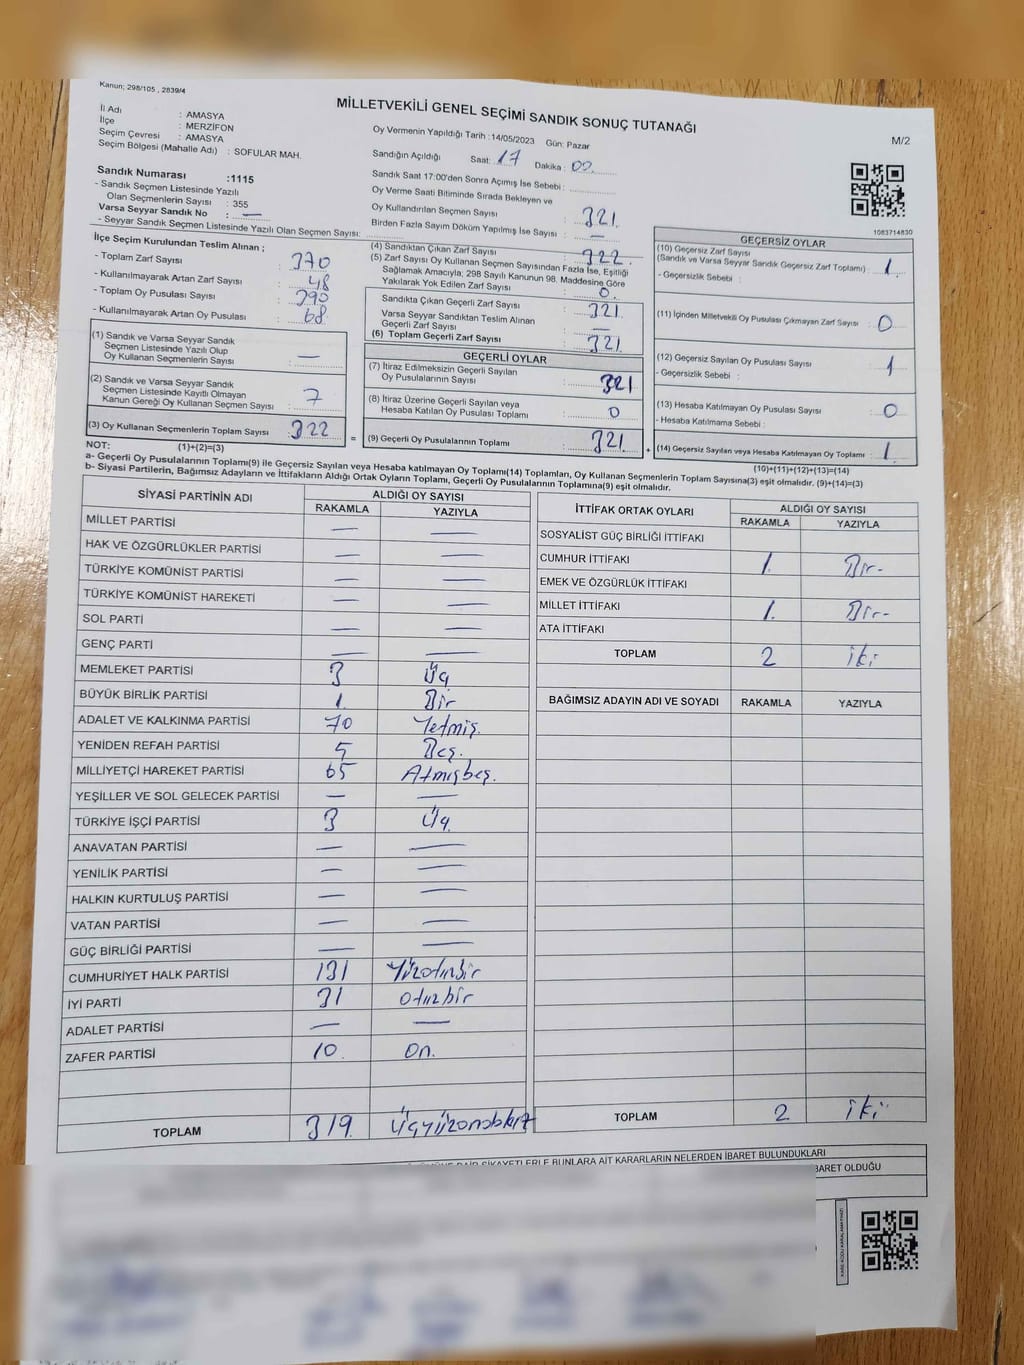 Kanun; 298/105 , 2839/4
MİLLETVEKİLİ GENEL SEÇİMİ SANDIK SONUÇ TUTANAĞI
M/2
İl Adı : AMASYA
İlçe : MERZİFON
Seçim Çevresi : AMASYA
Seçim Bölgesi (Mahalle Adı) : SOFULAR MAH.
Sandık Numarası :1115
- Sandık Seçmen Listesinde Yazılı
Olan Seçmenlerin Sayısı : 355
Varsa Seyyar Sandık No : —
- Seyyar Sandık Seçmen Listesinde Yazılı Olan Seçmen Sayısı:
Oy Vermenin Yapıldığı Tarih :14/05/2023 Gün: Pazar
Sandığın Açıldığı Saat: 17 Dakika : 00
Sandık Saat 17:00'den Sonra Açımış İse Sebebi :
Oy Verme Saati Bitiminde Sırada Bekleyen ve
Oy Kullandırılan Seçmen Sayısı : 321
Birden Fazla Sayım Döküm Yapılmış İse Sayısı : —
1083714830
İlçe Seçim Kurulundan Teslim Alınan ;
- Toplam Zarf Sayısı : 370
- Kullanılmayarak Artan Zarf Sayısı : 48
- Toplam Oy Pusulası Sayısı : 390
- Kullanılmayarak Artan Oy Pusulası : 68
(1) Sandık ve Varsa Seyyar Sandık
Seçmen Listesinde Yazılı Olup
Oy Kullanan Seçmenlerin Sayısı : —
(2) Sandık ve Varsa Seyyar Sandık
Seçmen Listesinde Kayıtlı Olmayan
Kanun Gereği Oy Kullanan Seçmen Sayısı : 7
(3) Oy Kullanan Seçmenlerin Toplam Sayısı : 322
(4) Sandıktan Çıkan Zarf Sayısı : 322
(5) Zarf Sayısı Oy Kullanan Seçmen Sayısından Fazla İse, Eşitliği
Sağlamak Amacıyla; 298 Sayılı Kanunun 98. Maddesine Göre
Yakılarak Yok Edilen Zarf Sayısı : 0
Sandıkta Çıkan Geçerli Zarf Sayısı : 321
Varsa Seyyar Sandıktan Teslim Alınan
Geçerli Zarf Sayısı : —
(6) Toplam Geçerli Zarf Sayısı : 321
GEÇERLİ OYLAR
(7) İtiraz Edilmeksizin Geçerli Sayılan
Oy Pusulalarının Sayısı : 321
(8) İtiraz Üzerine Geçerli Sayılan veya
Hesaba Katılan Oy Pusulası Toplamı : 0
= (9) Geçerli Oy Pusulalarının Toplamı : 321 +
GEÇERSİZ OYLAR
(10) Geçersiz Zarf Sayısı
(Sandık ve Varsa Seyyar Sandık Geçersiz Zarf Toplamı) : 1
- Geçersizlik Sebebi :
(11) İçinden Milletvekili Oy Pusulası Çıkmayan Zarf Sayısı : 0
(12) Geçersiz Sayılan Oy Pusulası Sayısı : 1
- Geçersizlik Sebebi :
(13) Hesaba Katılmayan Oy Pusulası Sayısı : 0
- Hesaba Katılmama Sebebi :
(14) Geçersiz Sayılan veya Hesaba Katılmayan Oy Toplamı : 1
NOT: (1)+(2)=(3)
(10)+(11)+(12)+(13)=(14)
a- Geçerli Oy Pusulalarının Toplamı(9) ile Geçersiz Sayılan veya Hesaba katılmayan Oy Toplamı(14) Toplamları, Oy Kullanan Seçmenlerin Toplam Sayısına(3) eşit olmalıdır. (9)+(14)=(3)
b- Siyasi Partilerin, Bağımsız Adayların ve İttifakların Aldığı Ortak Oyların Toplamı, Geçerli Oy Pusulalarının Toplamına(9) eşit olmalıdır.
SİYASİ PARTİNİN ADI ALDIĞI OY SAYISI
RAKAMLA YAZIYLA
MİLLET PARTİSİ — —
HAK VE ÖZGÜRLÜKLER PARTİSİ — —
TÜRKİYE KOMÜNİST PARTİSİ — —
TÜRKİYE KOMÜNİST HAREKETİ — —
SOL PARTİ — —
GENÇ PARTİ — —
MEMLEKET PARTİSİ 3 Üç
BÜYÜK BİRLİK PARTİSİ 1 Bir
ADALET VE KALKINMA PARTİSİ 70 Yetmiş.
YENİDEN REFAH PARTİSİ 5 Beş.
MİLLİYETÇİ HAREKET PARTİSİ 65 Atmışbeş.
YEŞİLLER VE SOL GELECEK PARTİSİ — —
TÜRKİYE İŞÇİ PARTİSİ 3 Üç.
ANAVATAN PARTİSİ — —
YENİLİK PARTİSİ — —
HALKIN KURTULUŞ PARTİSİ — —
VATAN PARTİSİ — —
GÜÇ BİRLİĞİ PARTİSİ — —
CUMHURİYET HALK PARTİSİ 131 Yüzotuzbir
İYİ PARTİ 31 otuzbir
ADALET PARTİSİ — —
ZAFER PARTİSİ 10. on.
TOPLAM 319. Üçyüzondokuz
İTTİFAK ORTAK OYLARI ALDIĞI OY SAYISI
RAKAMLA YAZIYLA
SOSYALİST GÜÇ BİRLİĞİ İTTİFAKI
CUMHUR İTTİFAKI 1. Bir-
EMEK VE ÖZGÜRLÜK İTTİFAKI
MİLLET İTTİFAKI 1. Bir-
ATA İTTİFAKI
TOPLAM 2 iki
BAĞIMSIZ ADAYIN ADI VE SOYADI RAKAMLA YAZIYLA
TOPLAM 2 iki
ŞİKAYETLERLE BUNLARA AİT KARARLARIN NELERDEN İBARET BULUNDUKLARI
BARET OLDUĞU